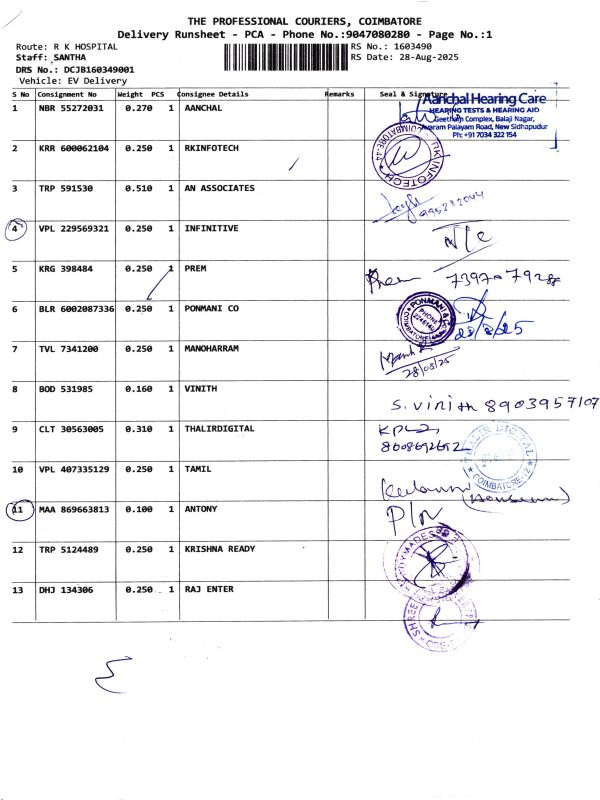 THE PROFESSIONAL COURIERS, COIMBATORE
Delivery Runsheet - PCA - Phone No.:9047080280 - Page No.:1
Route: R K HOSPITAL RS No.: 1603490
Staff: SANTHA RS Date: 28-Aug-2025
DRS No.: DCJB160349001
Vehicle: EV Delivery
S No Consignment No Weight PCS Consignee Details Remarks Seal & Signature
1 NBR 55272031 0.270 1 AANCHAL
Aanchal Hearing Care
HEARING TESTS & HEARING AID
Geetham Complex, Balaji Nagar,
Palayam Road, New Sidhapudur
Ph: +91 7034 322 154
2 KRR 600062104 0.250 1 RKINFOTECH
RK INFOTECH
COIMBATORE-44
3 TRP 591530 0.510 1 AN ASSOCIATES
4 VPL 229569321 0.250 1 INFINITIVE
N/C
5 KRG 398484 0.250 1 PREM
Prem
6 BLR 6002087336 0.250 1 PONMANI CO
PONMANI &
PHONE
28/8/25
7 TVL 7341200 0.250 1 MANOHARRAM
28/08/25
8 BOD 531985 0.160 1 VINITH
S. Vinith 8903957107
9 CLT 30563005 0.310 1 THALIRDIGITAL
8608692652
COIMBATORE-12
10 VPL 407335129 0.250 1 TAMIL
11 MAA 869663813 0.100 1 ANTONY
P/N
12 TRP 5124489 0.250 1 KRISHNA READY
READYMADES
13 DHJ 134306 0.250 1 RAJ ENTER
SHREE